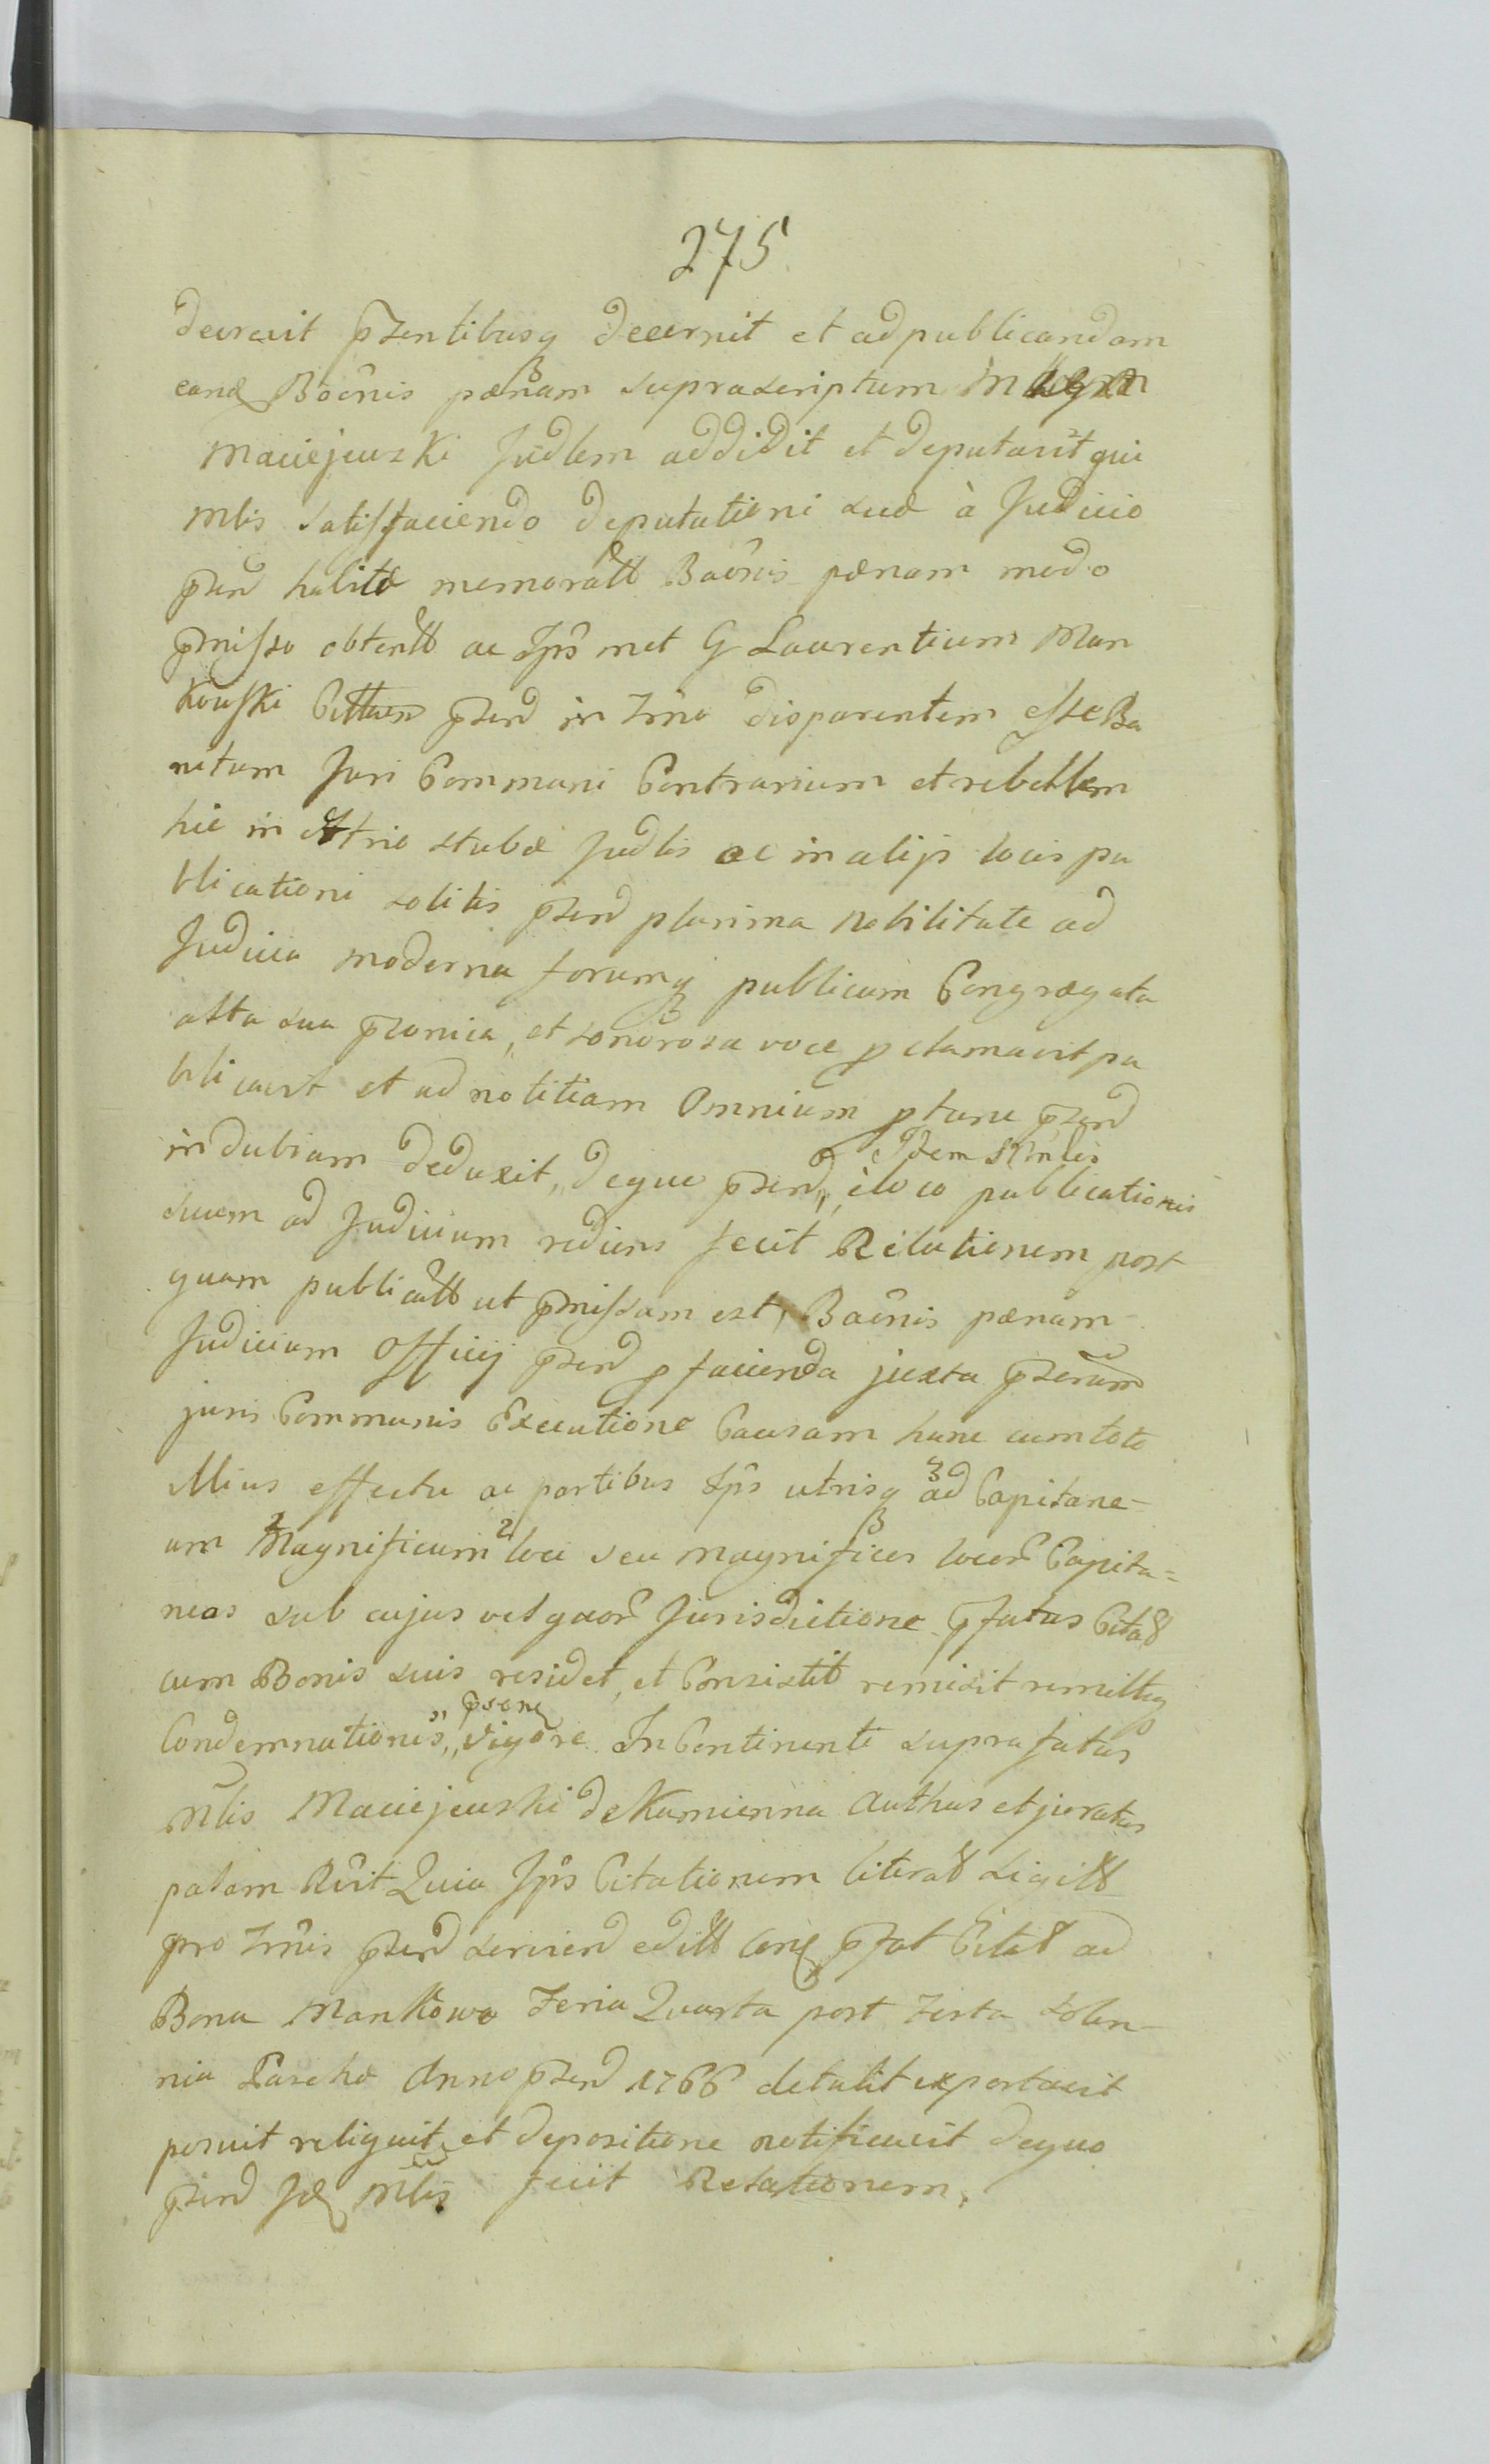 275
decrevit pzentibusq decernit et ad publicandam
eand Bacnis pænam suprascriptum
Maciejewski Judlem addidit et deputavit qui
Mlis satisfaciendo deputationi suæ à Judicio
pzend habitæ memoratt Bacnis pænam modo
pmisso obtentt ac Ips met G Laurentium Man
kowski Cittum pzend in Tmo disparentem esse Ba
nitum Juri Communi Contrarium et rebellem
hic in Atrio stubæ Judlis ac in alijs locis pu
blicationi solitis pzend plurima Nobilitate ad
Judicia moderna forumq publicum Congregata
alta sua pzonica, et sonorosa voce pclamavit pu
blicavit et ad notitiam Omnium ptunc pzend
Idem Mnlis
indubiam deduxit, dequo pzend,, è loco publicationis
suum ad Judicium rediens fecit Relationem post
quam publicatt ut pmissum est, Bacnis pænam
Judicium Officij pzend p facienda juxta pzerum
juris Communis Executione Causam hanc cum toto
illius effectu ac partibus Ips utrisq ad Capitane-
um Magnificum loci seu magnificos locor Capita=
neos sub cujus vel quor Jurisdictione pfatus Citat
cum Bonis suis residet, et Consistit remisit remittq
psone
Condemnationis,, vigore. In Continenti suprafatus
Mlis Maciejewski de Kamienna Authus et juratus
palam Rvit Quia Ips Citationem literat sigilt
pro Tmis pzend serviend editt con pfat Citat ad
Bona Mankowo Feria Quarta post Festa Solen-
nia Paschæ Anno pzend 1766 detulit exportavit
posuit reliquit et depositione notificavit dequo
pzend Jd Mlis fecit Relationem.